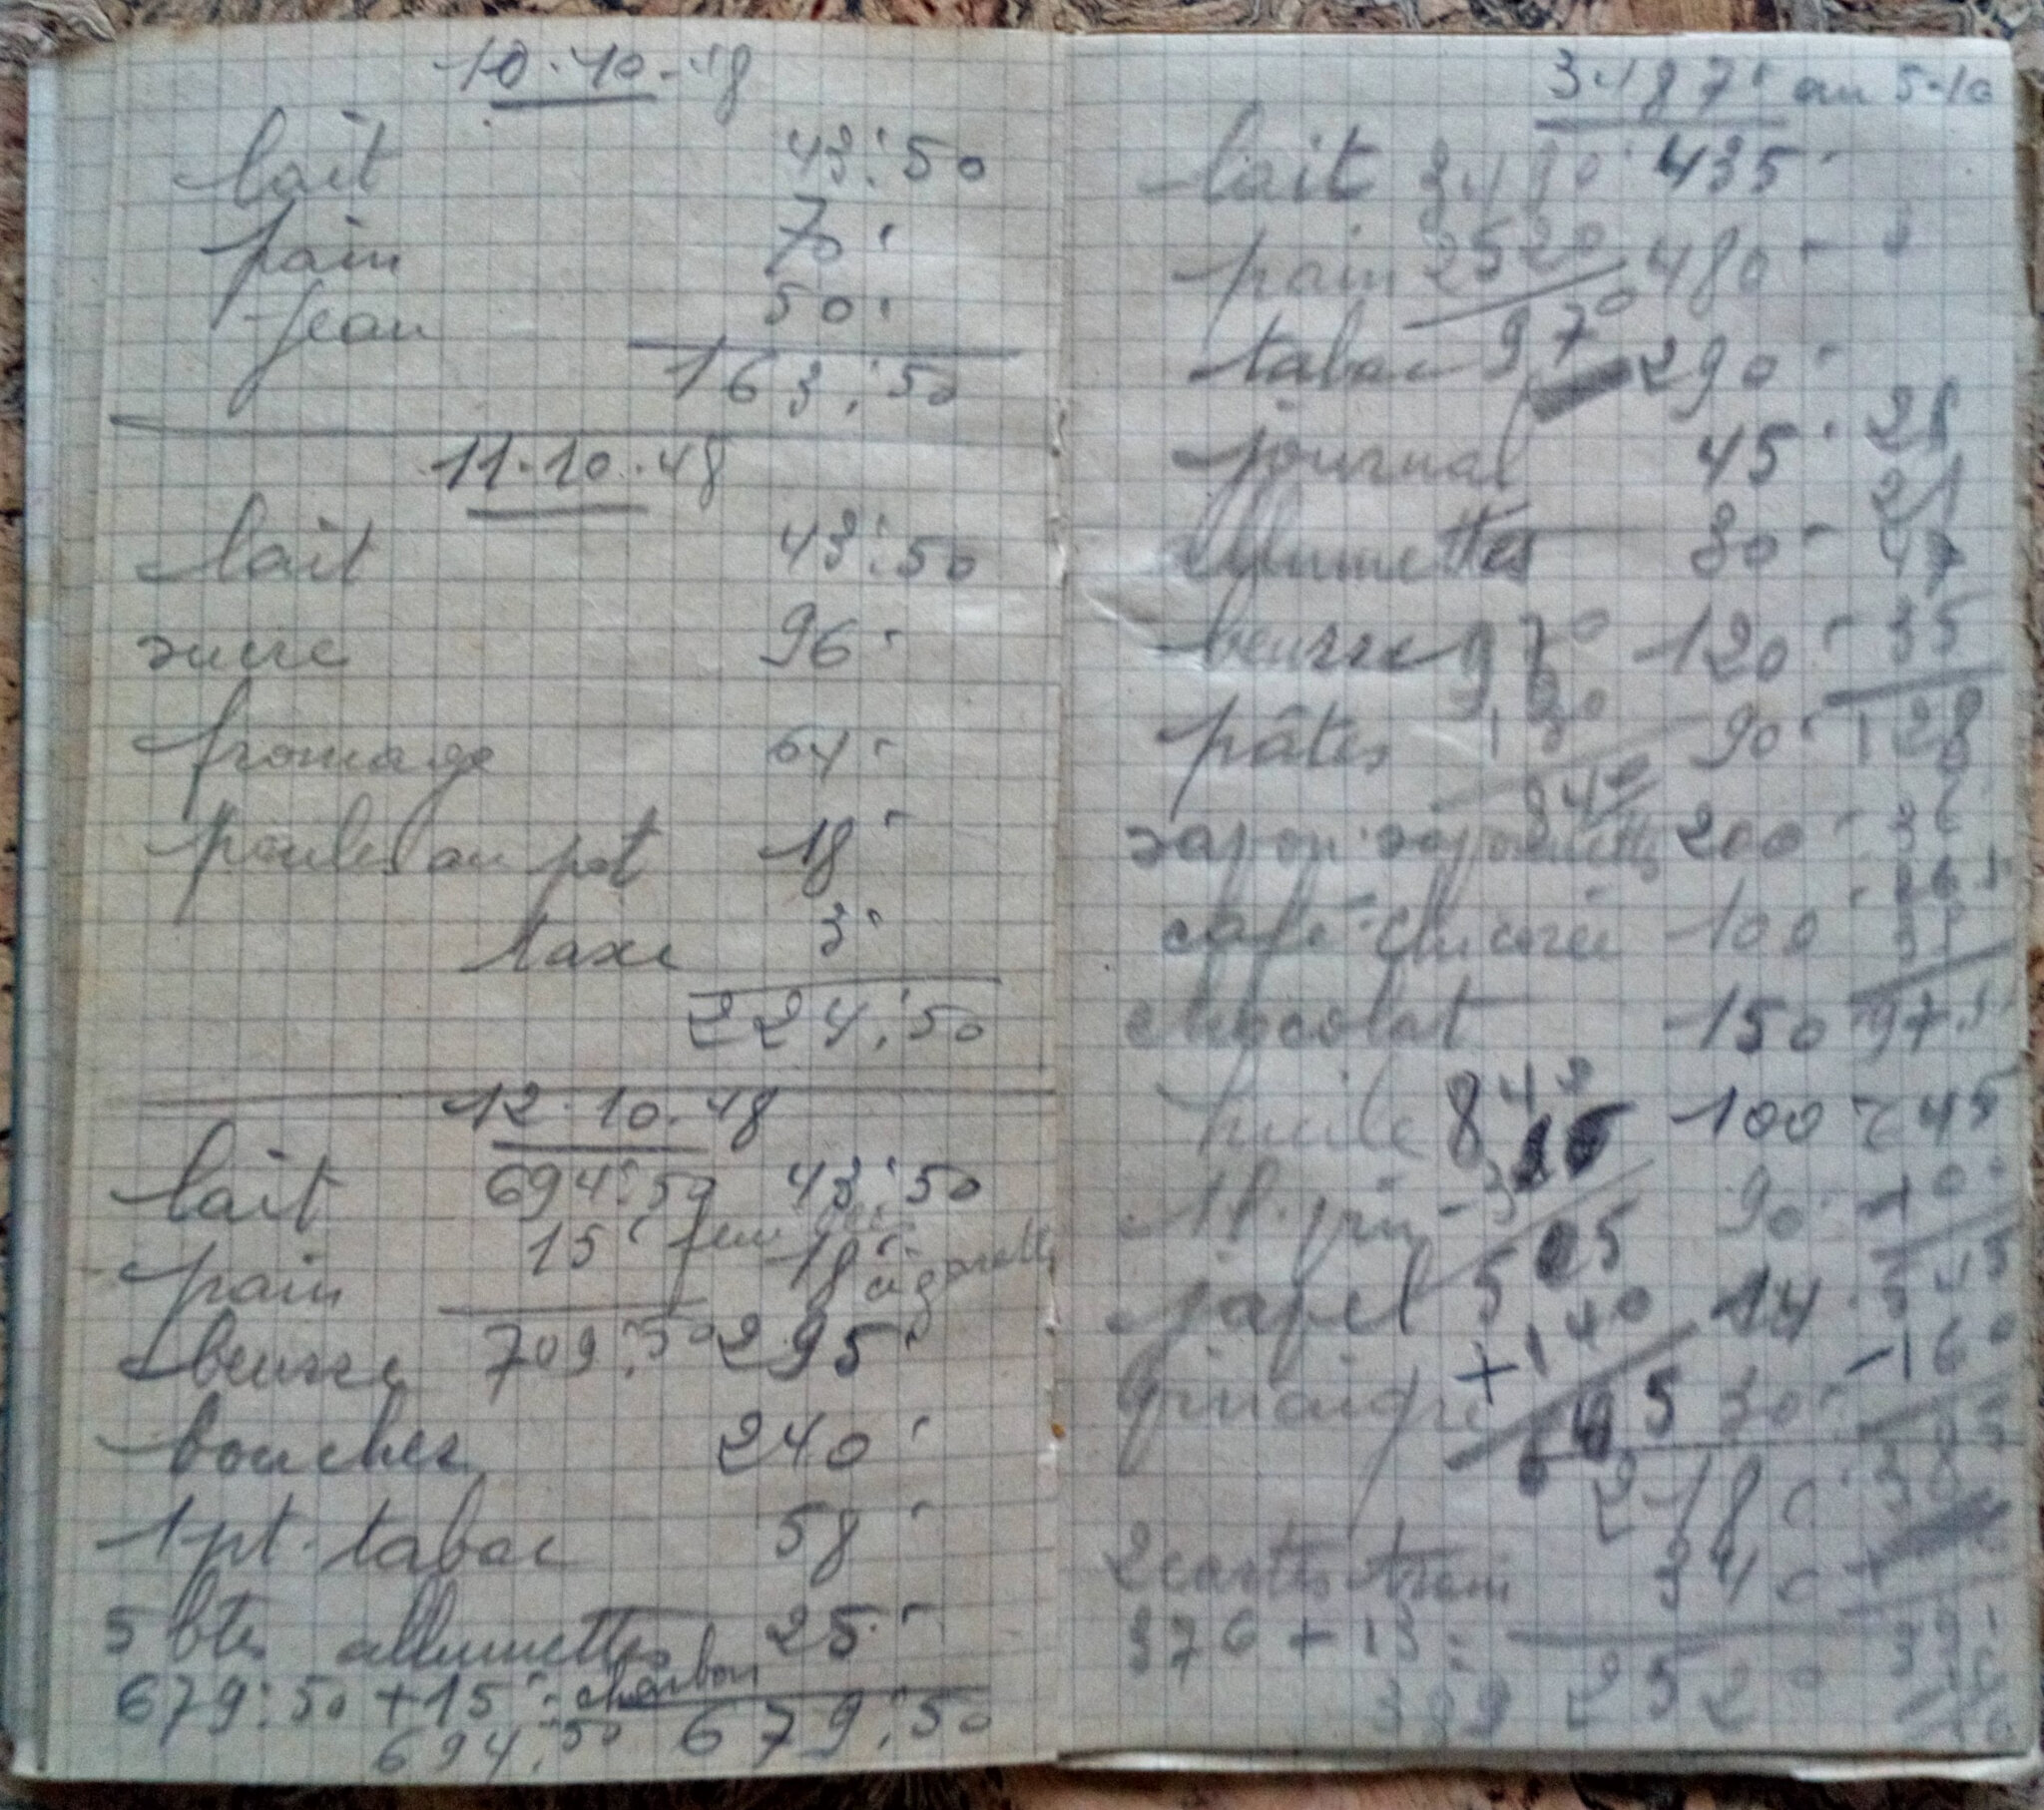 10.10.48
lait 43:50
pain 70:
Jean 50:
163:50
11.10.48
lait 43:50
sucre 96-
fromage 64-
poule au pot 18-
taxe 3-
224:50
12.10.48
lait 694:50 43:50
pain 15: 18: cigarettes
beurre 709:50 295-
boucher 240-
1 pt. tabac 58-
5 btes allumettes 25-
679:50 + 15: charbon
694:50 679:50
3.187: au 5-10
lait 3480 435-
pain 2520 480-
tabac 970 290-
journal 45- 28
21
allumettes 30- 47
beurre 970 120- 35
130
pâtes 90- 128
840
savon savonnettes 200-
café-chicorée 100
chocolat 150 97.5
huile 840 100 245
90-
papel 505 14 545
+ 140 -160
vinaigre 645 30- 385
2180
2 cartes tram 340
376 + 13 =
389 2520